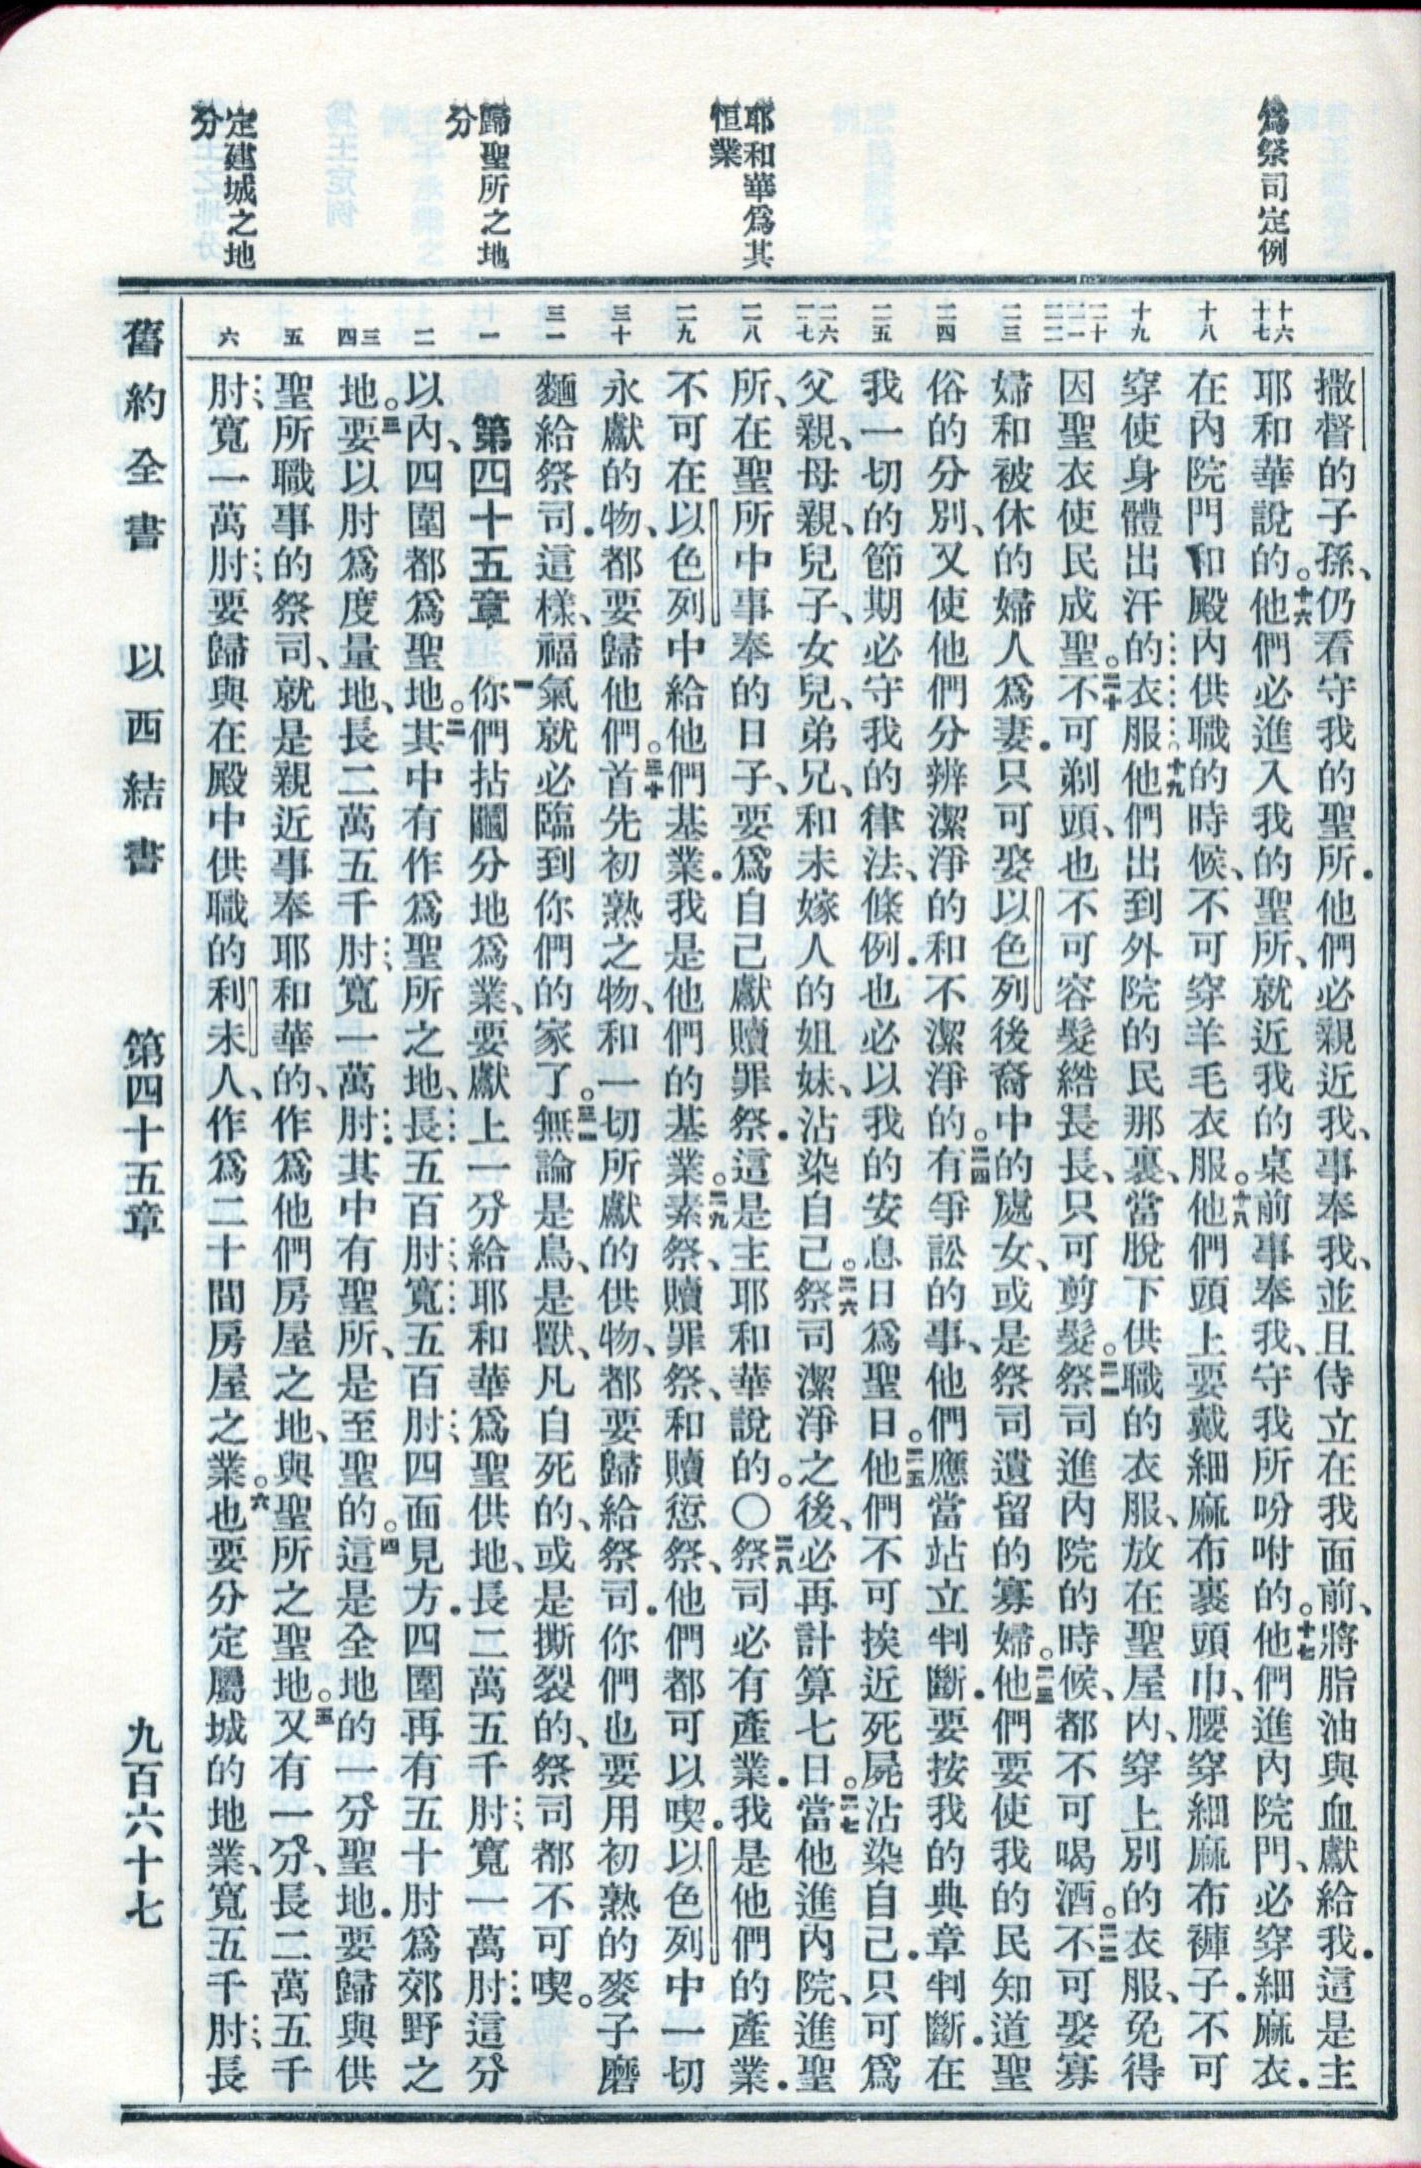 爲祭司定例
耶和華爲其
恒業
歸聖所之地
分
定建城之地
分
十六
十七
十八
十九
二十
二一
二二
二三
二四
二五
二六
二七
二八
二九
三十
三一
一
二
三
四
五
六
撒督的子孫、仍看守我的聖所．他們必親近我、事奉我、並且侍立在我面前、將脂油與血獻給我．這是主
耶和華說的。十六他們必進入我的聖所、就近我的桌前事奉我、守我所吩咐的。十七他們進內院門、必穿細麻衣．
在內院門和殿內供職的時候、不可穿羊毛衣服。十八他們頭上要戴細麻布裹頭巾、腰穿細麻布褲子．不可
穿使身體出汗的衣服。十九他們出到外院的民那裏、當脫下供職的衣服、放在聖屋內、穿上別的衣服、免得
因聖衣使民成聖。二十不可剃頭、也不可容髮綹長長、只可剪髮。二一祭司進內院的時候、都不可喝酒。二二不可娶寡
婦和被休的婦人爲妻．只可娶以色列後裔中的處女、或是祭司遺留的寡婦。二三他們要使我的民知道聖
俗的分別、又使他們分辨潔淨的和不潔淨的。二四有爭訟的事、他們應當站立判斷．要按我的典章判斷．在
我一切的節期必守我的律法、條例．也必以我的安息日爲聖日。二五他們不可挨近死屍沾染自己．只可爲
父親、母親、兒子、女兒、弟兄、和未嫁人的姐妹、沾染自己。二六祭司潔淨之後、必再計算七日。二七當他進內院、進聖
所、在聖所中事奉的日子、要爲自己獻贖罪祭．這是主耶和華說的。〇二八祭司必有產業．我是他們的產業．
不可在以色列中給他們基業．我是他們的基業。二九素祭、贖罪祭、和贖愆祭、他們都可以喫．以色列中一切
永獻的物、都要歸他們。三十首先初熟之物、和一切所獻的供物、都要歸給祭司．你們也要用初熟的麥子磨
麵給祭司．這樣、福氣就必臨到你們的家了。三一無論是鳥、是獸、凡自死的、或是撕裂的、祭司都不可喫。
第四十五章　一你們拈鬮分地爲業、要獻上一分給耶和華爲聖供地、長二萬五千肘、寬一萬肘．這分
以內、四圍都爲聖地。二其中有作爲聖所之地、長五百肘、寬五百肘、四面見方．四圍再有五十肘爲郊野之
地。三要以肘爲度量地、長二萬五千肘、寬一萬肘．其中有聖所、是至聖的。四這是全地的一分聖地．要歸與供
聖所職事的祭司、就是親近事奉耶和華的、作爲他們房屋之地、與聖所之聖地。五又有一分、長二萬五千
肘、寬一萬肘、要歸與在殿中供職的利未人、作爲二十間房屋之業。六也要分定屬城的地業、寬五千肘、長
舊約全書　以西結書　第四十五章　九百六十七